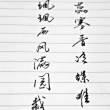 飒飒西风满园栽
蕊寒香冷蝶难